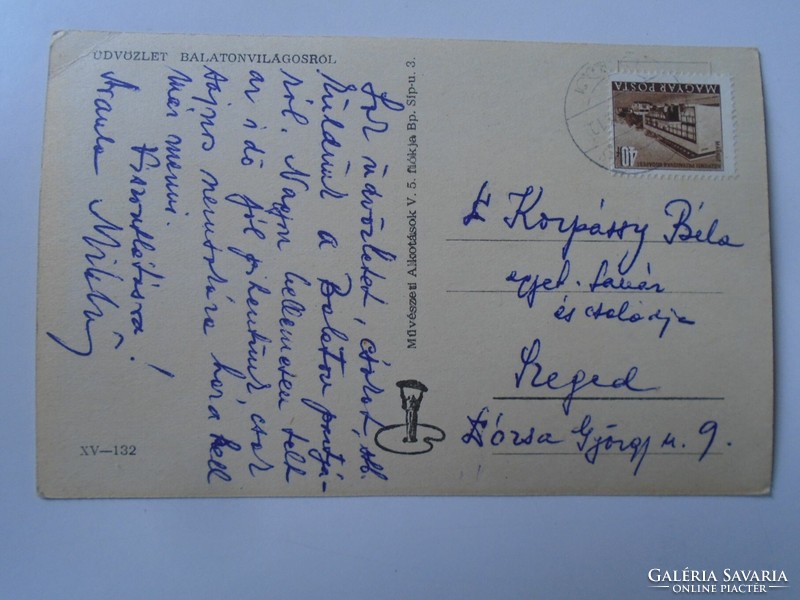 ÜDVÖZLET BALATONVILÁGOSRÓL
Sok üdvözletet, csókot, stb.
küldünk a Balaton partjá-
ról. Nagyon kellemesen telt
az idő jól pihentünk, csak
sajnos nemsokára haza kell
már menni.
Viszontlátásra!
Aranka Miklós
XV—132
Művészeti Alkotások V. 5. fiókja Bp. Síp-u. 3.
MAGYAR POSTA
40f
Korpássy Béla
egyet. tanár
és családja
Szeged
Dózsa György u. 9.
GALÉRIA SAVARIA
ONLINE PIACTÉR